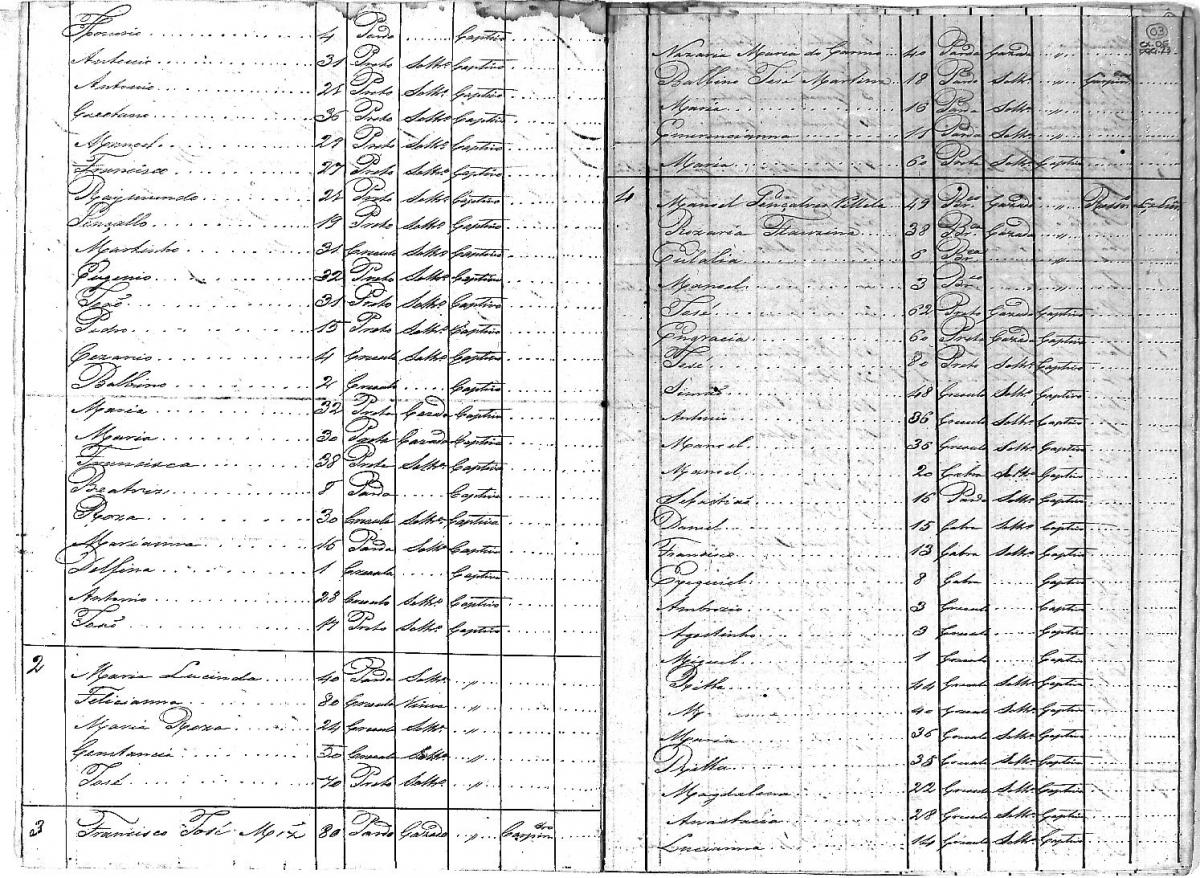 4 Pardo Captivo
Antonio 31 Preto Solto Captivo
Antonio 21 Preto Solto Captivo
Caetano 36 Preto Solto Captivo
Manoel 29 Preto Solto Captivo
Francisco 27 Preto Solto Captivo
Raymundo 21 Preto Solto Captivo
Gonçallo 19 Preto Solto Captivo
Martinho 31 Creoulo Solto Captivo
Eugenio 32 Preto Solto Captivo
José 31 Preto Solto Captivo
Pedro 15 Preto Solto Captivo
Cezario 4 Creoulo Solto Captivo
Balbino 2 Creoulo Captivo
Maria 32 Preta Cazada Captiva
Maria 30 Parda Cazada Captiva
Francisca 38 Preta Solta Captiva
Beatris 8 Parda Captiva
Roza 30 Creoula Solta Captiva
Marianna 16 Parda Solta Captiva
Delfina 1 Creoula Captiva
Antonio 28 Creoulo Solto Captivo
José 19 Preto Solto Captivo
2 Maria Lucinda 40 Parda Solta "
Felicianna 80 Creoula Viuva "
Maria Roza 24 Creoula Solta "
Constancia 50 Creoula Solta "
José 70 Preto Solto "
3 Francisco José Miz 80 Pardo Cazado "
03
Nazaria Maria do Carmo 40 Parda Cazada "
Balbino José Martins 18 Pardo Solto "
Maria 16 Parda Solta "
15 Parda Solta "
Maria 60 Preta Solta Captiva
4 Manoel Gonçalves Villela 49 Bco Cazado "
Rozaria Flauzina 38 Bca Cazada "
Eulalia 6 Bca "
Manoel 3 Bco "
José 62 Preto Cazado Captivo
Engracia 60 Preta Cazada Captiva
José 80 Preto Solto Captivo
Simão 48 Creoulo Solto Captivo
Antonio 36 Creoulo Solto Captivo
Manoel 35 Creoulo Solto Captivo
Manoel 20 Cabra Solto Captivo
Sebastião 16 Pardo Solto Captivo
Daniel 15 Cabra Solto Captivo
Francisco 13 Cabra Solto Captivo
Ezequiel 8 Cabra Captivo
Ambrozio 3 Creoulo Captivo
Agostinho 3 Creoulo Captivo
Miguel 1 Creoulo Captivo
Ritta 44 Creoula Solta Captiva
40 Creoula Solta Captiva
Maria 36 Creoula Solta Captiva
Ritta 38 Creoula Solta Captiva
Magdalena 22 Creoula Solta Captiva
Anastacia 28 Creoula Solta Captiva
Lucianna 14 Creoula Solta Captiva